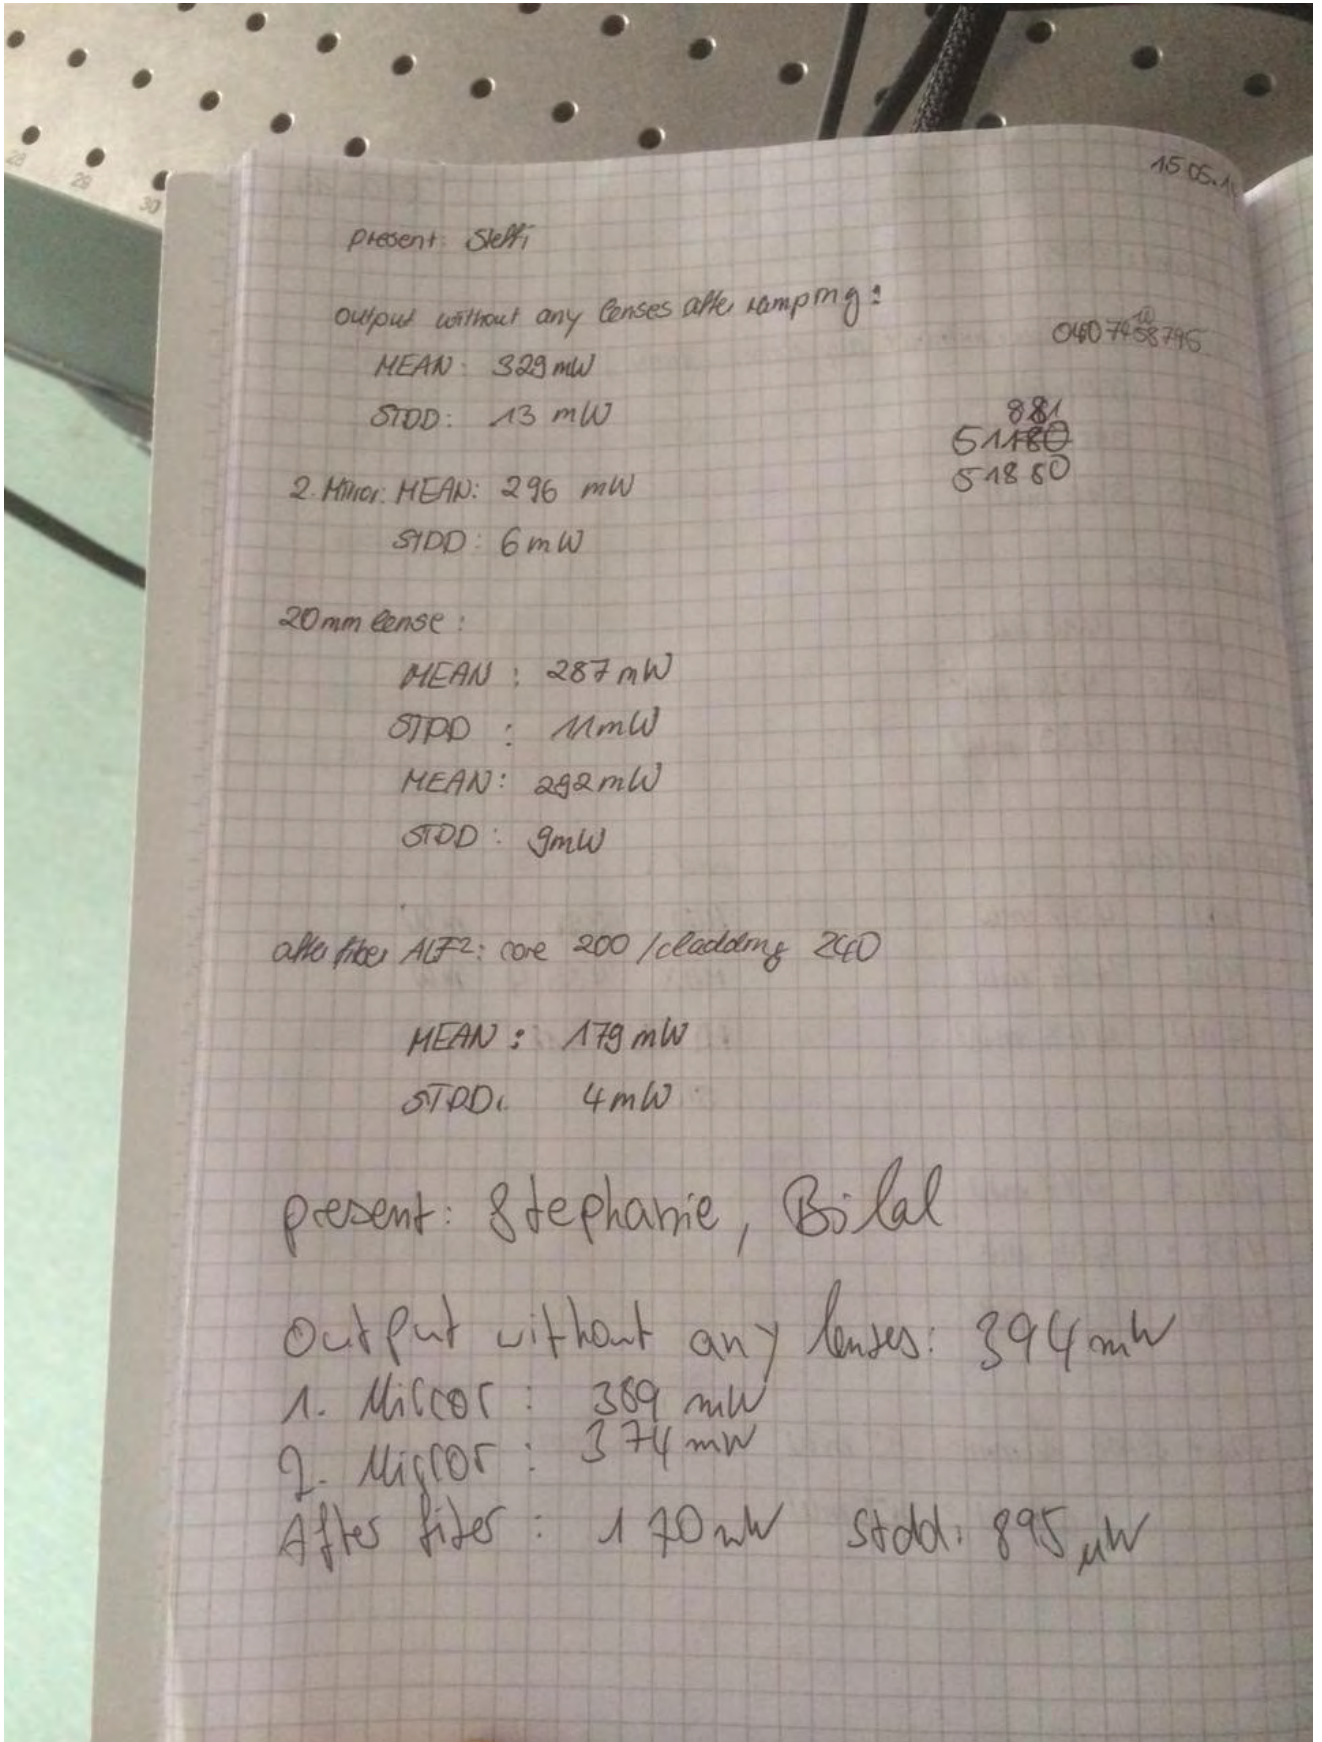 15.05.1
present: Steffi
output without any lenses after ramping:
MEAN: 329 mW
STDD: 13 mW
881
2. Mirror: MEAN: 296 mW
51850
STDD: 6 mW
20mm lense:
MEAN: 287 mW
STDD: 11mW
MEAN: 292mW
STDD: 9mW
after fiber ALF2: core 200 / cladding 240
MEAN: 179 mW
STDD: 4mW
present: Stephanie, Bilal
Output without any lenses: 394 mW
1. Mirror: 389 mW
2. Mirror: 374 mW
After fiber: 170 mW stdd: 895 µW
28
29
30